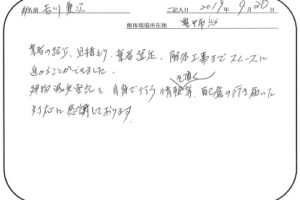 お名前 石川 ご記入日 2019年9月20日
解体現場所在地 豊中市
業者の紹介、見積り、業者選定、解体工事までスムーズに
進めることができました。
建物滅失登記を自身で行う情報等、配慮の行き届いた
を頂く
対応に感謝しております。